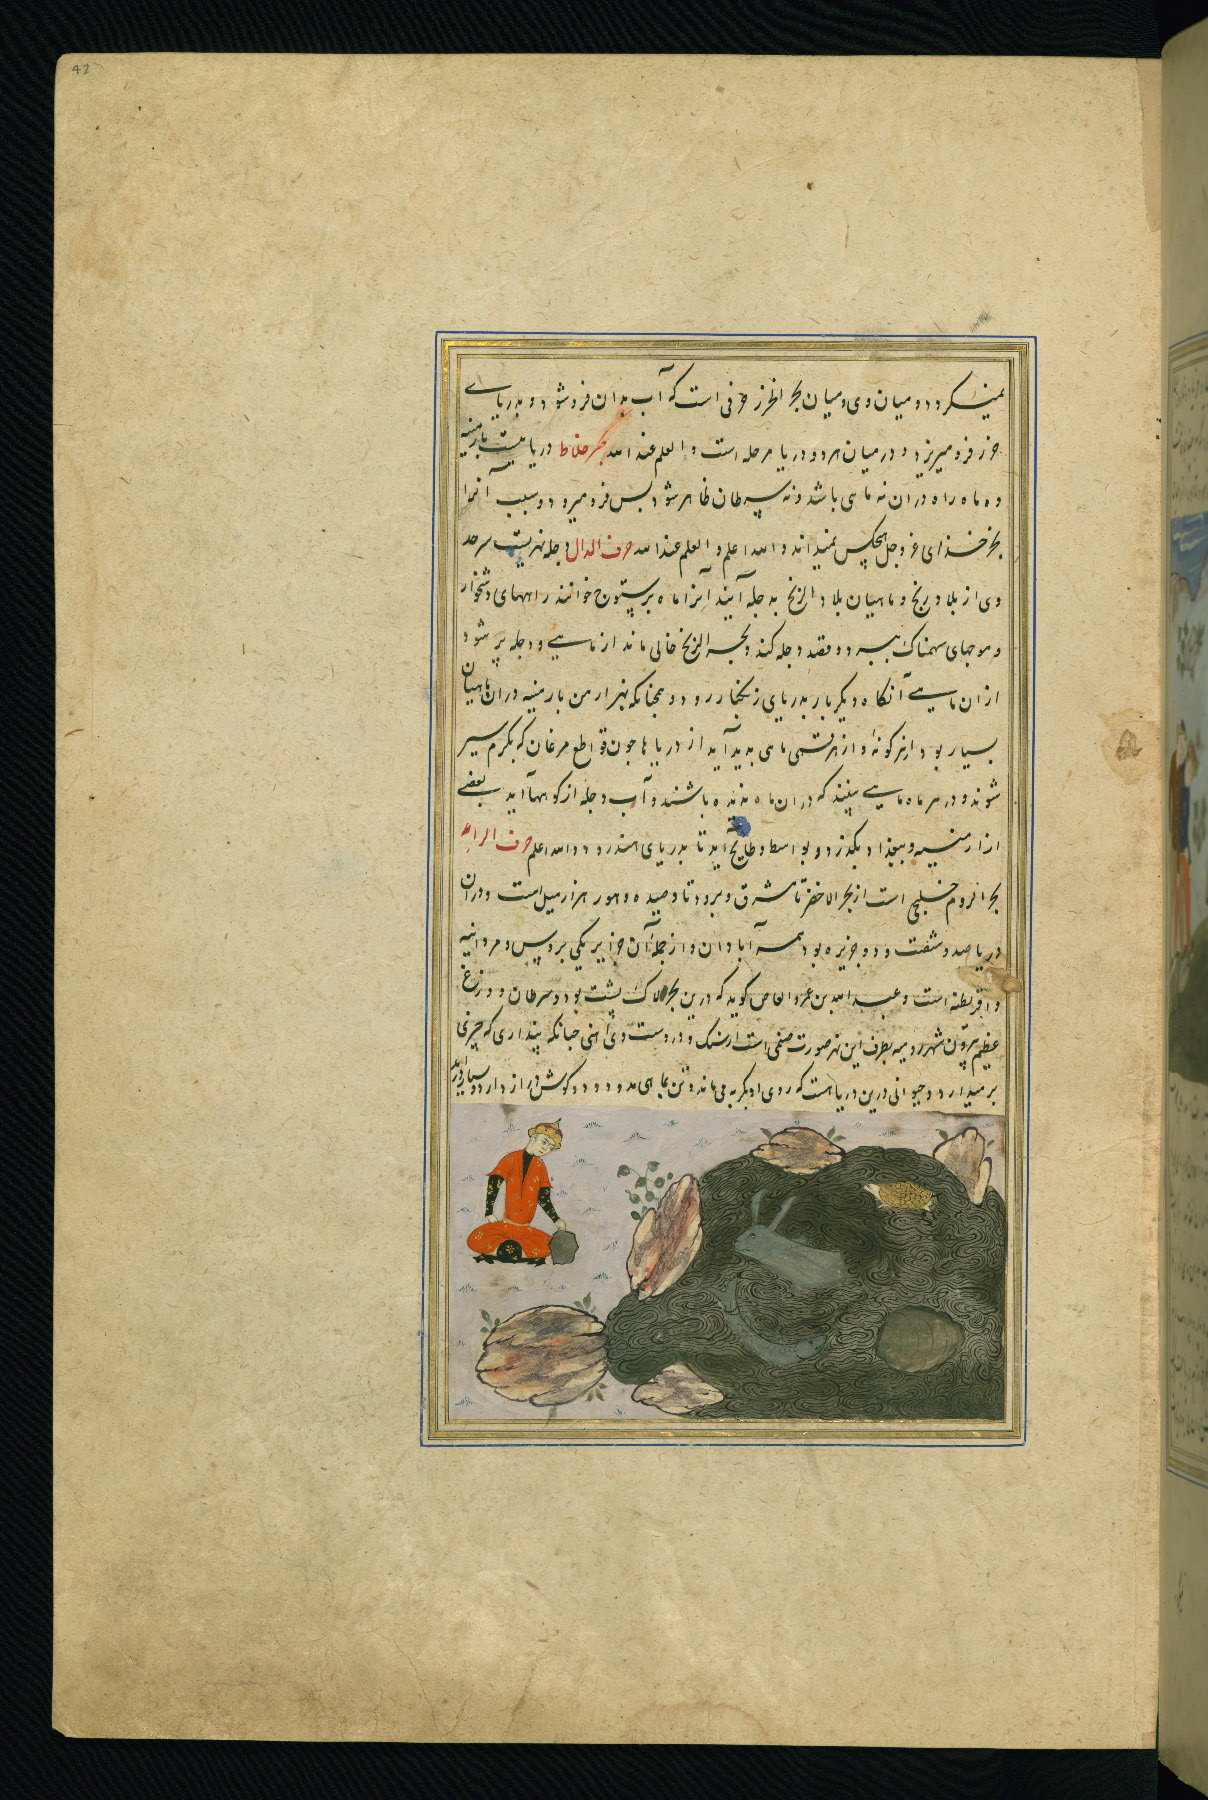 42
نمیکردد و میان وی و میان بحر الخزر فرقی است که آب بدان فرو شود و بدریای
خزر فرو میریزد و درمیان هر دو دریا مرحله است و العلم عند الله بحر خلاط دریاییست بارمنیه
ده ماه راه دران نه ماهی باشد و نه سرطان ظاهر شود بس فرو میرود و سبب آنرا
بجز خدای عز وجل هیچکس نمیداند و الله اعلم و العلم عند الله حرف الدال دجله نهریست سرحد
وی از بلاد زنج و ماهیان بلاد الزنج به دجله آیند آنرا ماه برستوج خوانند راههای دشخوار
و موجهای سهمناک ببرد و قصد دجله کند و بحر الزنج خالی ماند از ماهی و دجله پر شود
ازان ماهی آنکاه دیکر بار بدریای زنکبار رود و همچنانکه بنهرارمن بارمنیه دران ماهیان
بسیار بود از هر کونه و از هر قسمی ماهی بدید آید از دریاها جون قواطع مرغان که بکرم سیر
شوند و در هر ماه ماهی بینند که دران ماه ندیده باشند و آب دجله از کوهها آید بعضی
از ارمنیه و ببغداد بکذرد و بواسط و طایح آید تا بدریای هند رود والله اعلم حرف الراء
بحر الروم خلیجی است از بحر الاخضر تا مشرق و برود تا و صیده و هور هزار میل است و دران
دریا صد و شصت و دو جزیره بود همه آبادان و از جمله آن جزایر یکی بروس و مردانیه
و اقریطنه است و عبد الله بن عمرو العاص کوید که درین بحر لاک پشت بود و سرطان و وزغ
عظیم بیرون شهر رومیه بطرف این نهر صورت صنمی است از سنک و در دست وی آهنی جنانکه پنداری که چیزی
بر میدارد و حیوانی درین دریا هست که روی او بکربه می ماند و تن بماهی و دو کوش دراز دارد